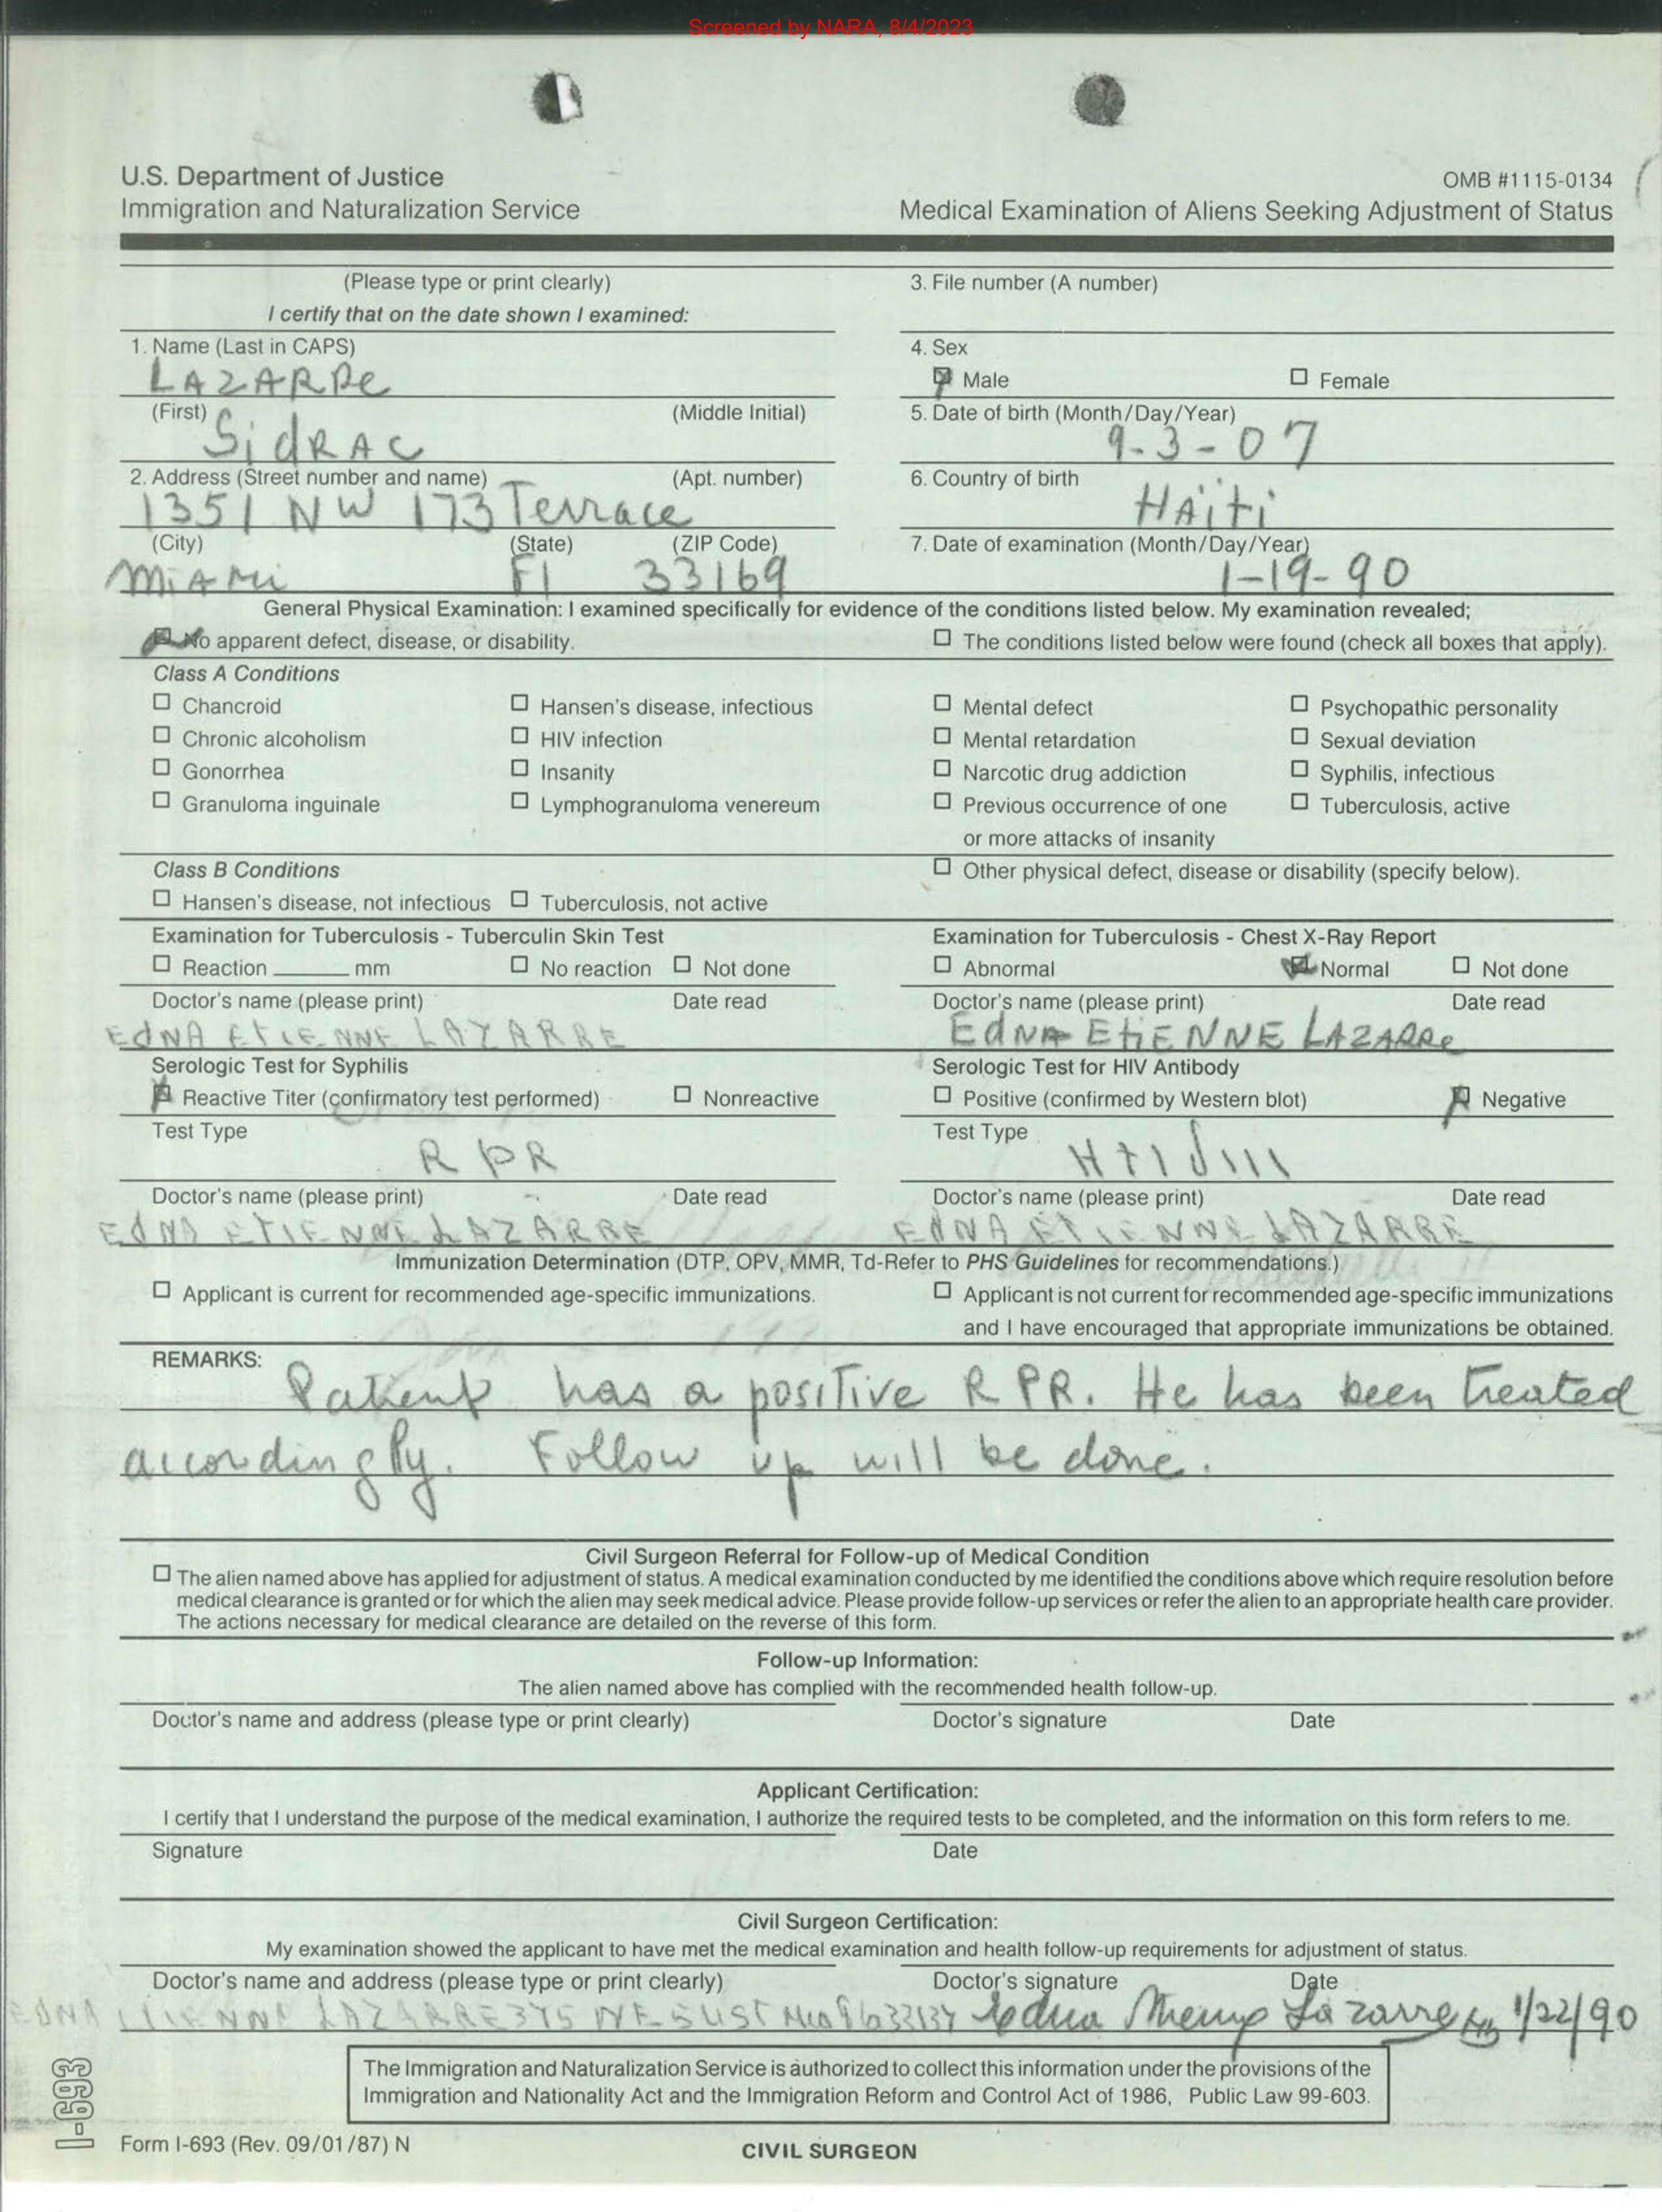 Screened by NARA, 8/4/2023
U.S. Department of Justice
Immigration and Naturalization Service
OMB #1115-0134
Medical Examination of Aliens Seeking Adjustment of Status
(Please type or print clearly)
I certify that on the date shown I examined:
3. File number (A number)
1. Name (Last in CAPS)
LAZARRe
4. Sex
Male Female
(First) (Middle Initial)
SidRAC
5. Date of birth (Month/Day/Year)
9-3-07
2. Address (Street number and name) (Apt. number)
1351 NW 173 Terrace
6. Country of birth
HAïti
(City) (State) (ZIP Code)
MiAMi Fl 33169
7. Date of examination (Month/Day/Year)
1-19-90
General Physical Examination: I examined specifically for evidence of the conditions listed below. My examination revealed;
No apparent defect, disease, or disability. The conditions listed below were found (check all boxes that apply).
Class A Conditions
Chancroid Hansen's disease, infectious Mental defect Psychopathic personality
Chronic alcoholism HIV infection Mental retardation Sexual deviation
Gonorrhea Insanity Narcotic drug addiction Syphilis, infectious
Granuloma inguinale Lymphogranuloma venereum Previous occurrence of one Tuberculosis, active
or more attacks of insanity
Class B Conditions Other physical defect, disease or disability (specify below).
Hansen's disease, not infectious Tuberculosis, not active
Examination for Tuberculosis - Tuberculin Skin Test Examination for Tuberculosis - Chest X-Ray Report
Reaction ______ mm No reaction Not done Abnormal Normal Not done
Doctor's name (please print) Date read Doctor's name (please print) Date read
EdNA ETIENNE LAZARRE EdNA EtiENNE LAZARRe
Serologic Test for Syphilis Serologic Test for HIV Antibody
Reactive Titer (confirmatory test performed) Nonreactive Positive (confirmed by Western blot) Negative
Test Type Test Type
RPR
Doctor's name (please print) Date read Doctor's name (please print) Date read
EdNA ETIENNE LAZARRE EdNA ETIENNE LAZARRE
Immunization Determination (DTP, OPV, MMR, Td-Refer to PHS Guidelines for recommendations.)
Applicant is current for recommended age-specific immunizations. Applicant is not current for recommended age-specific immunizations
and I have encouraged that appropriate immunizations be obtained.
REMARKS: Patient has a positive RPR. He has been treated
accordingly. Follow up will be done.
Civil Surgeon Referral for Follow-up of Medical Condition
The alien named above has applied for adjustment of status. A medical examination conducted by me identified the conditions above which require resolution before
medical clearance is granted or for which the alien may seek medical advice. Please provide follow-up services or refer the alien to an appropriate health care provider.
The actions necessary for medical clearance are detailed on the reverse of this form.
Follow-up Information:
The alien named above has complied with the recommended health follow-up.
Doctor's name and address (please type or print clearly) Doctor's signature Date
Applicant Certification:
I certify that I understand the purpose of the medical examination, I authorize the required tests to be completed, and the information on this form refers to me.
Signature Date
Civil Surgeon Certification:
My examination showed the applicant to have met the medical examination and health follow-up requirements for adjustment of status.
Doctor's name and address (please type or print clearly) Doctor's signature Date
EDNA ETIENNE LAZARRE 375 NE 54 ST Mia Fl 33137 Edna Lazarre 1/22/90
The Immigration and Naturalization Service is authorized to collect this information under the provisions of the
Immigration and Nationality Act and the Immigration Reform and Control Act of 1986, Public Law 99-603.
I-693
Form I-693 (Rev. 09/01/87) N
CIVIL SURGEON